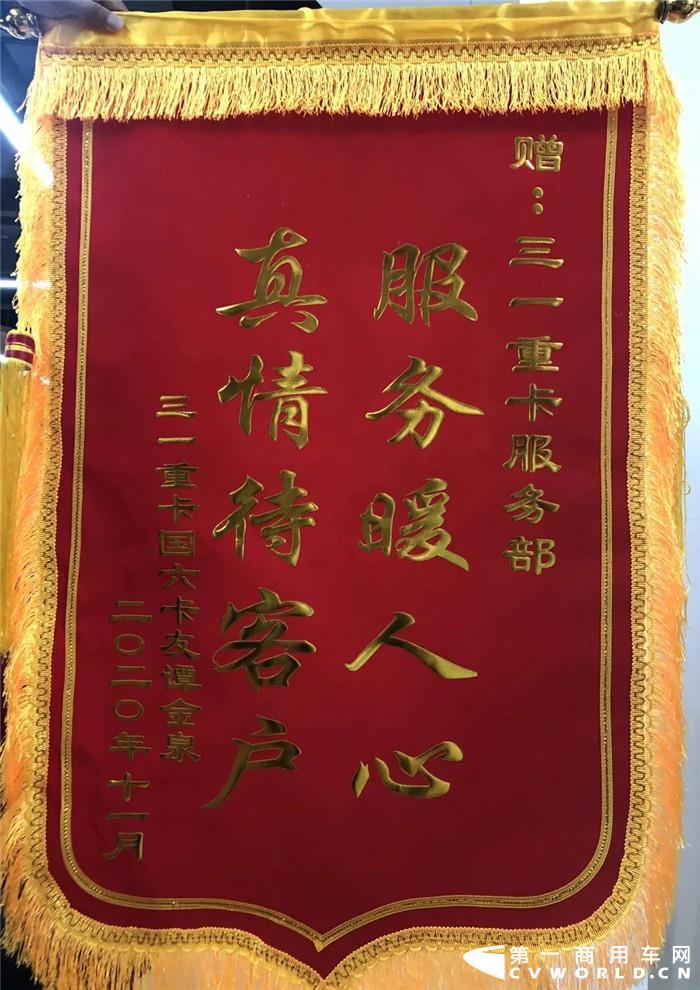 赠:三一重卡服务部
服务暖人心
真情待客户
三一重卡国六卡友谭金泉
二〇二〇年十一月
第一商用车网
CVWORLD.CN